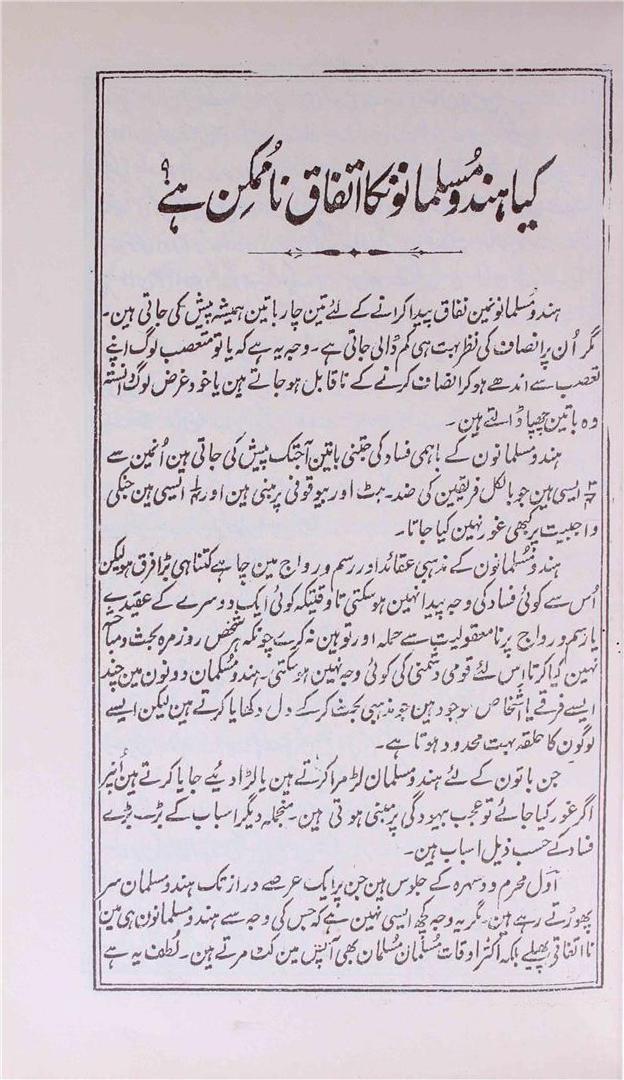 کیا ہندو مسلمانونکا اتفاق ناممکن ہے؟
ہندو مسلمانونمین نفاق پیدا کرانے کے لئے تین چار باتین ہمیشہ پیش کی جاتی ہین۔
مگر اُن پر انصاف کی نظر بہت ہی کم ڈالی جاتی ہے۔ وجہ یہ ہے کہ یا تو متعصب لوگ اپنے
تعصب سے اندھے ہوکر انصاف کرنے کے ناقابل ہوجاتے ہین یا خود غرض لوگ دانستہ
وہ باتین چھپا ڈالتے ہین۔
ہندو مسلمانون کے باہمی فساد کی جتنی باتین آجتک پیش کی جاتی ہین اُنمین سے
۳/۴ ایسی ہین جو بالکل فریقین کی ضد۔ ہٹ اور بیوقوفی پر مبنی ہین اور ۱/۴ ایسی ہین جنکی
واجبیت پر کبھی غور نہین کیا جاتا۔
ہندو مسلمانون کے مذہبی عقائد اور رسم و رواج مین چاہے کتنا ہی بڑا فرق ہو لیکن
اُس سے کوئی فساد کی وجہ پیدا نہین ہوسکتی تاوقتیکہ کوئی ایک دوسرے کے عقیدے
یا رسم و رواج پر نامعقولیت سے حملہ اور توہین نہ کرے چونکہ ہر شخص روز مرہ بحث و مباحثہ
نہین کیا کرتا اس لئے قومی دشمنی کی کوئی وجہ نہین ہوسکتی۔ ہندو مسلمان دونون مین چند
ایسے فرقے یا اشخاص موجود ہین جو مذہبی بحث کرکے دل دکھایا کرتے ہین لیکن ایسے
لوگون کا حلقہ بہت محدود ہوتا ہے۔
جن باتون کے لئے ہندو مسلمان لڑ مرا کرتے ہین یا لڑا دیئے جایا کرتے ہین اُنپر
اگر غور کیا جائے تو عجب بیہودگی پر مبنی ہوتی ہین۔ منجملہ دیگر اسباب کے بڑے بڑے
فساد کے حسب ذیل اسباب ہین۔
اول محرم و دسہرہ کے جلوس ہین جن پر ایک عرصے دراز تک ہندو مسلمان سر
پھوڑتے رہے ہین۔ مگر یہ وجہ کچھ ایسی نہین ہے کہ جس کی وجہ سے ہندو مسلمانون ہی مین
نا اتفاقی پھیلے بلکہ اکثر اوقات مسلمان مسلمان بھی آپس مین کٹ مرتے ہین۔ لُطف یہ ہے